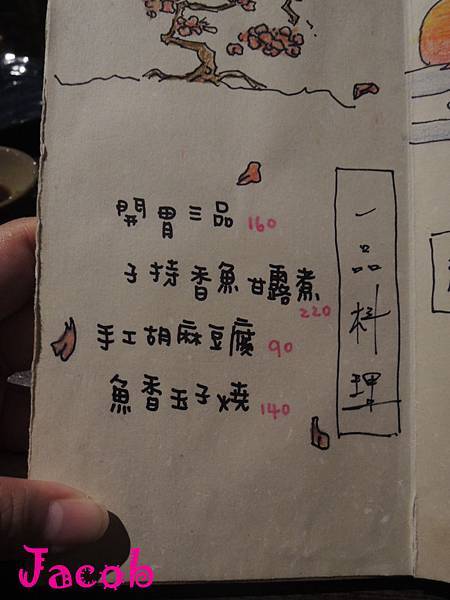 一品料理
開胃三品 160
子持香魚甘露煮 220
手工胡麻豆腐 90
魚香玉子燒 140
Jacob